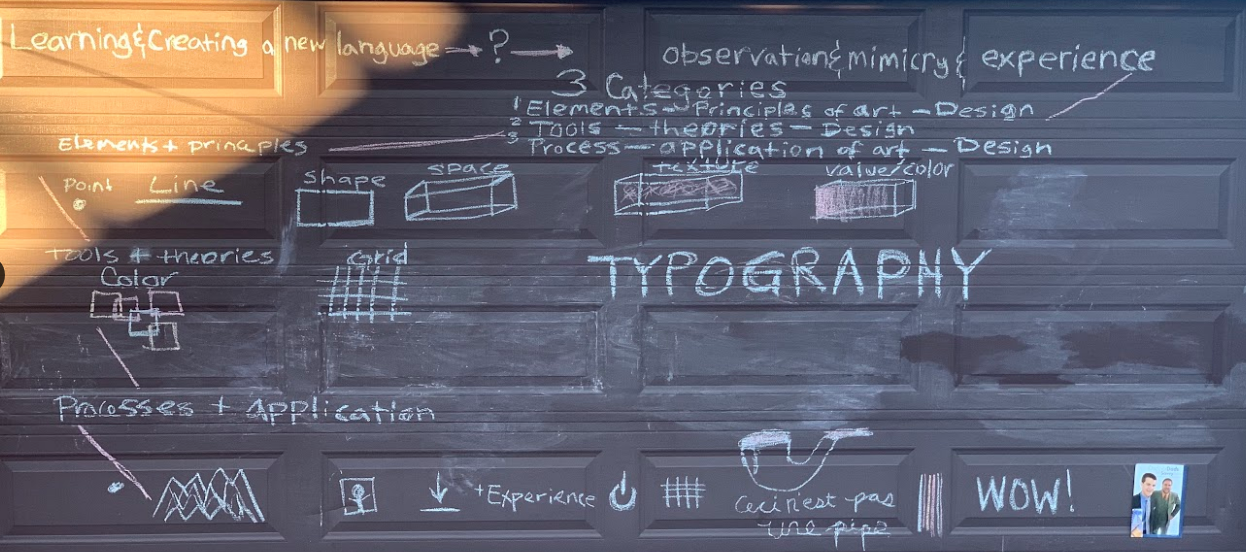 Learning&Creating a new language → ? → observation&mimicry& experience
3 Categories
1 Elements – Principles of art – Design
2 Tools – theories – Design
3 Process – application of art – Design
Elements + principles
Point Line shape space texture value/color
Tools + theories
Color Grid TYPOGRAPHY
Processes + Application
+Experience
Ceci n'est pas
une pipe
WOW!